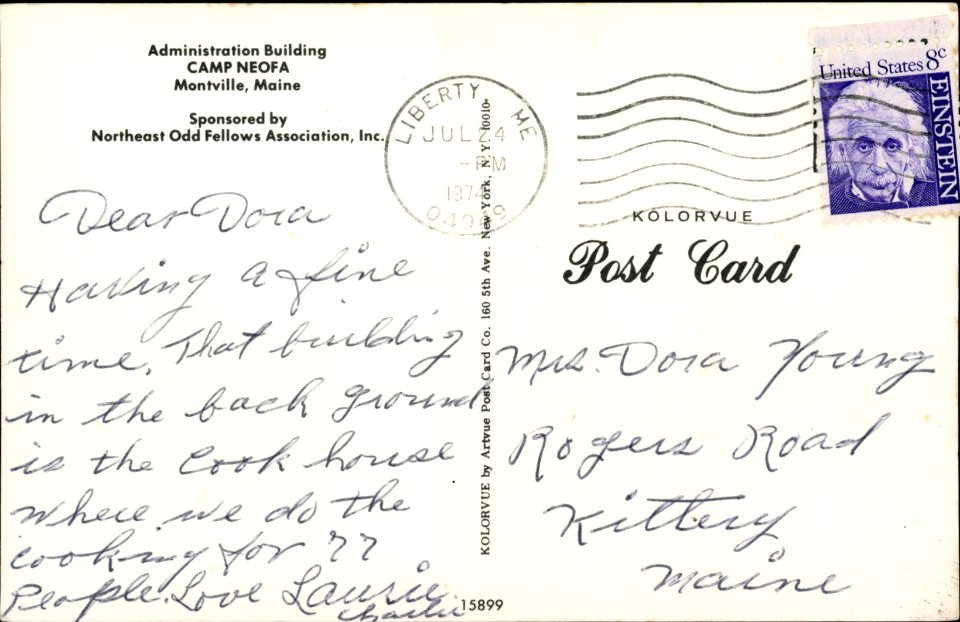 Administration Building
CAMP NEOFA
Montville, Maine
Sponsored by
Northeast Odd Fellows Association, Inc.
Dear Dora
Having a fine
time. That building
in the back ground
is the cook house
where we do the
cooking for 77
People. Love Laurie
Charlie
KOLORVUE by Artvue Post Card Co. 160 5th Ave. New York, N.Y. 10010
15899
LIBERTY ME
JUL 24
-PM
1974
04949
United States 8c
EINSTEIN
KOLORVUE
Post Card
Mrs. Dora Young
Rogers Road
Kittery
Maine